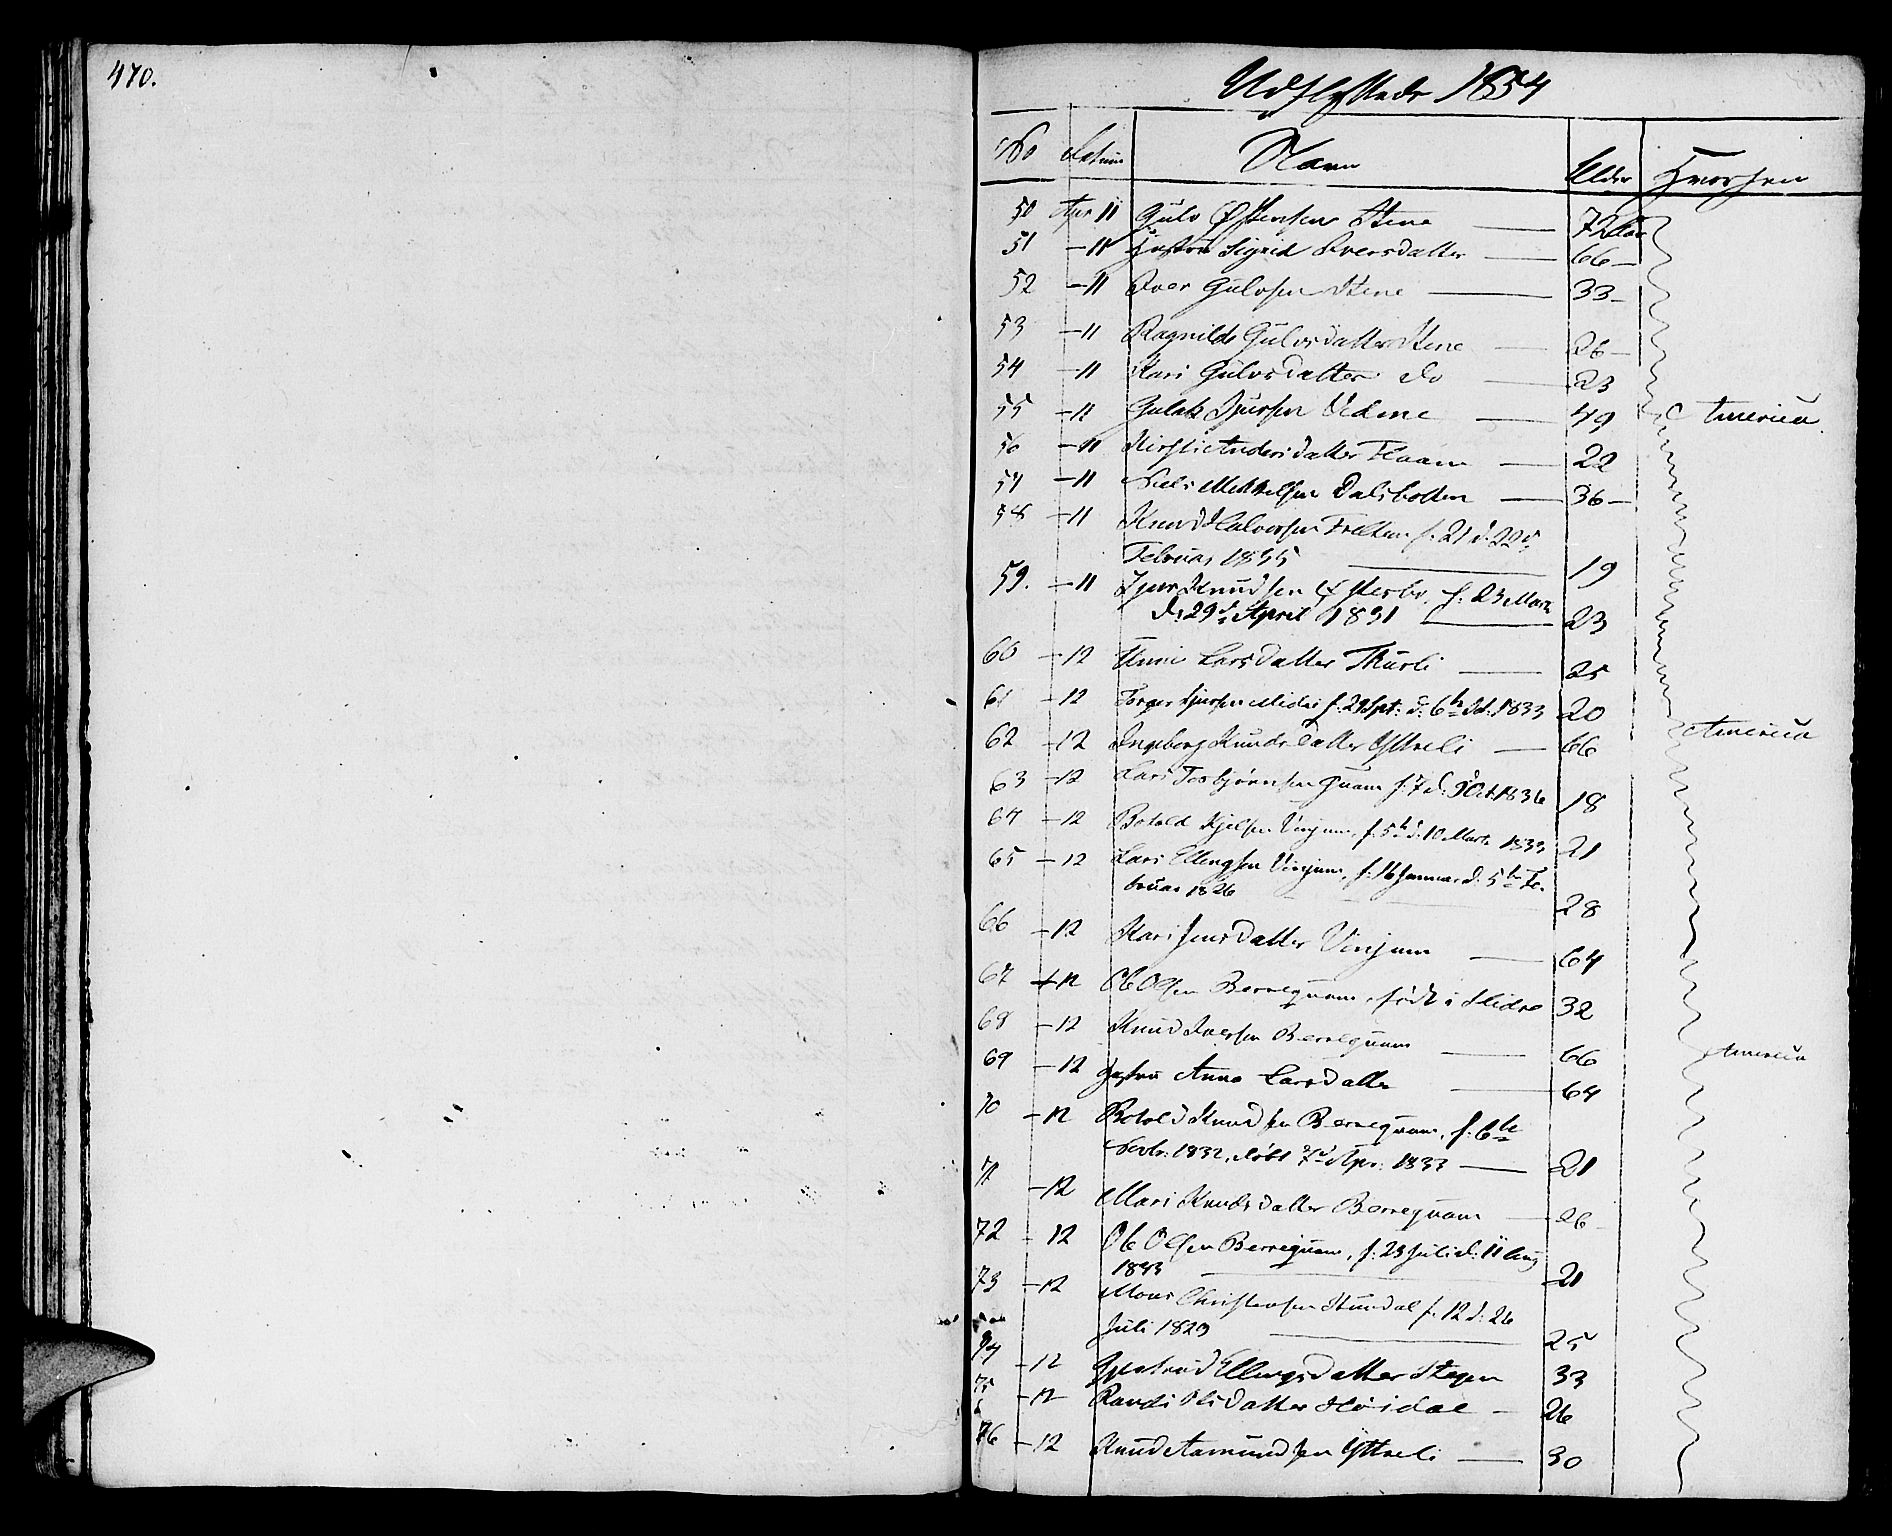 470.
Udflyttede 1854
No Datum Navn Alder Hvorhen
50 Apr 11 Gulv Østensen Stene 72 Aar
51 – 11 Hustru Sigrid Iversdatter 66 –
52 – 11 Iver Gulvsen Stene 33 –
53 – 11 Ragnilde Gulvsdatter Stene 26 –
54 – 11 Kari Gulvsdatter do 23
55 – 11 Gulak Sjursen Vedme 49 America
56 – 11 Kirsti Andersdatter Flaam 22
57 – 11 Niels Mikkelsen Dalsbotten 36 –
58 – 11 Knud Halvorsen Fretem f. 21 d. 22d
Februar 1835 19
59. – 11 Sjur Knudsen Østerbø, f: 23 Marts
d: 29d April 1831 23
60 – 12 Unni Larsdatter Thurli 25
61 – 12 Torger Sjursen Midie f. 29 Spt: d: 6te Oct: 1833 20
62 – 12 Ingeborg Knudsdatter Ytreli 66 America
63 – 12 Lars Torbjørnsen Qvam f. 7 d. 9 Oct. 1836 18
64 – 12 Botold Kjelsen Vinjum, f. 5te d. 10 Marts 1833 21
65 – 12 Lars Ellingsen Vinjum, f. 16 Januar d. 5te Fe-
bruar 1826 28
66 – 12 Kari Jensdatter Vinjum 64
67 – 12 Ole Olsen Berreqvam, født i Slidre 32
68 – 12 Knud Iversen Berreqvam 66
69 – 12 Hustru Anna Larsdatter 64 America
70 – 12 Botold Knudsen Berreqvam, f. 6te
Novbr: 1832, døbt 7d Apr: 1833 21
71 – 12 Mari Knudsdatter Berreqvam 26
72 – 12 Ole Olsen Berreqvam, f. 23 Juli d: 11 Aug
1833 21
73 – 12 Mons Christensen Stundal f. 12 d. 26
Juli 1829 25
74 – 12 Gjertrud Ellingsdatter Stegen 33
75 – 12 Randi Olsdatter Høidal – 26
76 – 12 Knud Aamundsen Yttreli 30